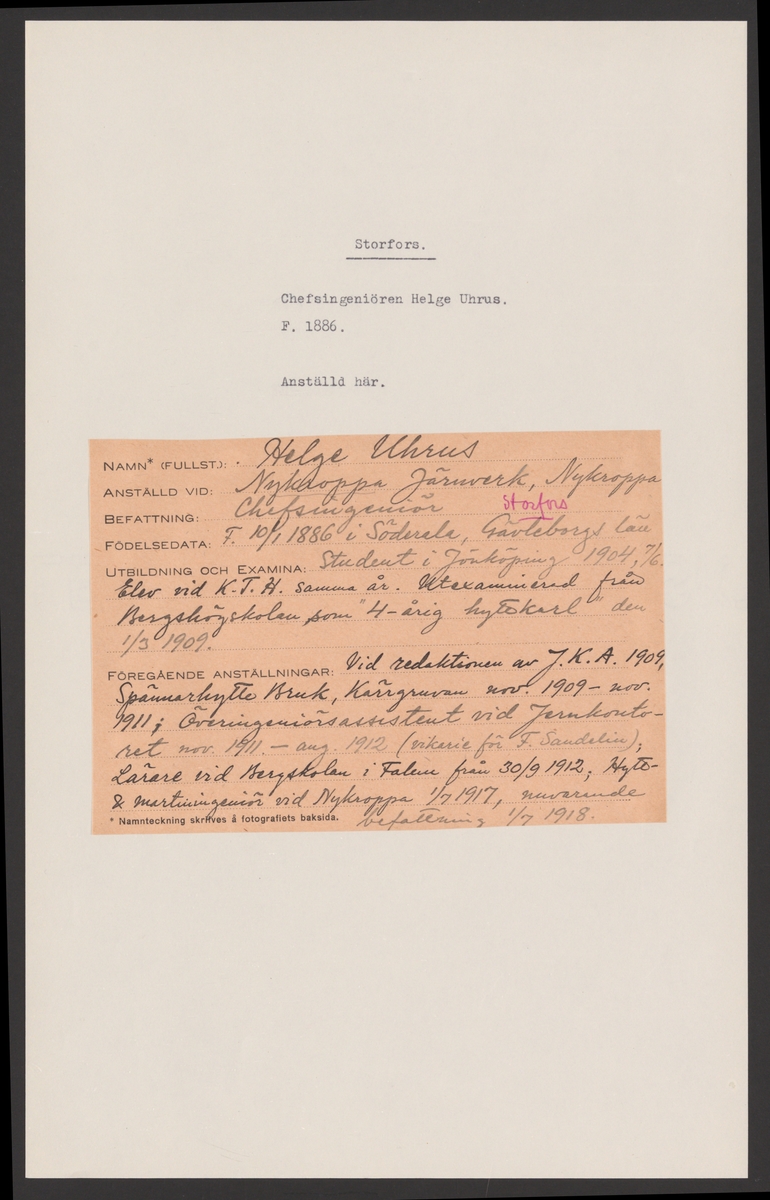 Storfors.
Chefsingeniören Helge Uhrus.
F. 1886.
Anställd här.
NAMN* (FULLST.): Helge Uhrus
ANSTÄLLD VID: Nykroppa Järnverk, Nykroppa
BEFATTNING: Chefsingeniör Storfors
FÖDELSEDATA: F. 10/1 1886 i Söderala, Gävleborgs län
UTBILDNING OCH EXAMINA: Student i Jönköping 1904, 7/6.
Elev vid K.T.H. samma år. Utexaminerad från
Bergshögskolan som "4-årig hyttekarl" den
1/3 1909.
FÖREGÅENDE ANSTÄLLNINGAR: Vid redaktionen av J.K.A. 1909,
Spännarhytte Bruk, Kärrgruvan nov. 1909 - nov.
1911; Överingeniörsassistent vid Jernkonto-
ret nov. 1911. - aug. 1912 (vikarie för F. Sandelin);
Lärare vid Bergskolan i Falun från 30/9 1912; Hytt-
& martiningeniör vid Nykroppa 1/7 1917, nuvarande
* Namnteckning skrifves å fotografiets baksida. befattning 1/7 1918.